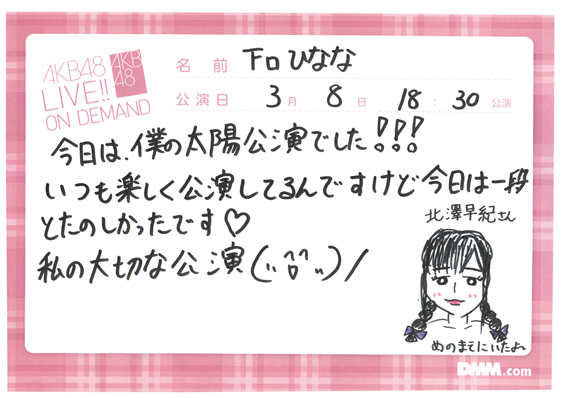 AKB48
LIVE!!
ON DEMAND
AKB
48
名前 下口ひなな
公演日 3月 8日 18:30公演
今日は、僕の太陽公演でした!!!
いつも楽しく公演してるんですけど今日は一段
とたのしかったです♡
私の大切な公演(
北澤早紀さん
めのまえにいたよ〜
DMM.com